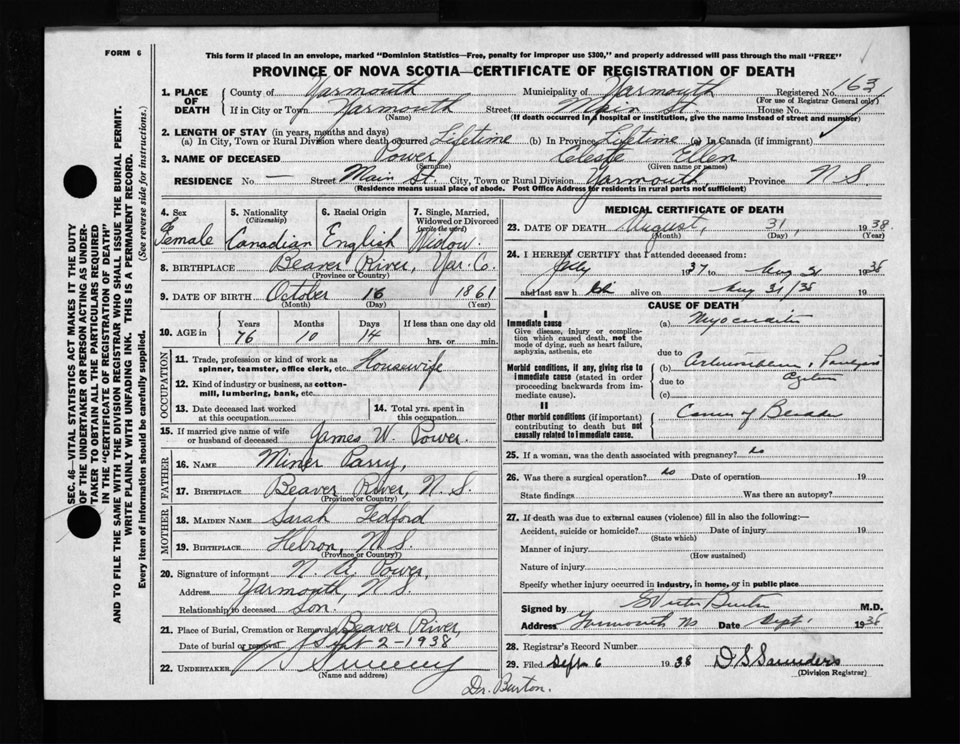 FORM 6
This form if placed in an envelope, marked "Dominion Statistics—Free, penalty for improper use $300," and properly addressed will pass through the mail "FREE"
PROVINCE OF NOVA SCOTIA—CERTIFICATE OF REGISTRATION OF DEATH
SEC. 46—VITAL STATISTICS ACT MAKES IT THE DUTY
OF THE UNDERTAKER OR PERSON ACTING AS UNDER-
TAKER TO OBTAIN ALL THE PARTICULARS REQUIRED
IN THE "CERTIFICATE OF REGISTRATION OF DEATH"
AND TO FILE THE SAME WITH THE DIVISION REGISTRAR WHO SHALL ISSUE THE BURIAL PERMIT.
WRITE PLAINLY WITH UNFADING INK. THIS IS A PERMANENT RECORD.
Every item of information should be carefully supplied. (See reverse side for instructions.)
1. PLACE OF DEATH County of Yarmouth Municipality of Yarmouth Registered No. 163
(For use of Registrar General only)
If in City or Town Yarmouth Street Main St. House No.
(Name) (If death occurred in a hospital or institution, give the name instead of street and number)
2. LENGTH OF STAY (in years, months and days)
(a) In City, Town or Rural Division where death occurred Lifetime (b) In Province Lifetime (c) In Canada (if immigrant)
3. NAME OF DECEASED Power Celeste Ellen
(Surname) (Given name or names)
RESIDENCE No. — Street Main St. City, Town or Rural Division Yarmouth, Province N.S.
(Residence means usual place of abode. Post Office Address for residents in rural parts not sufficient)
4. Sex 5. Nationality 6. Racial Origin 7. Single, Married,
(Citizenship) Widowed or Divorced
(write the word)
Female Canadian English Widow.
8. BIRTHPLACE Beaver River, Yar. Co.
(Province or Country)
9. DATE OF BIRTH October 16 1861
(Month) (Day) (Year)
10. AGE in Years Months Days If less than one day old
76 10 14 hrs. or min.
OCCUPATION
11. Trade, profession or kind of work as
spinner, teamster, office clerk, etc. Housewife
12. Kind of industry or business, as cotton-
mill, lumbering, bank, etc.
13. Date deceased last worked
at this occupation
14. Total yrs. spent in
this occupation
15. If married give name of wife
or husband of deceased James W. Power.
FATHER
16. NAME Miner Parry,
17. BIRTHPLACE Beaver River, N.S.
(Province or Country)
MOTHER
18. MAIDEN NAME Sarah Tedford
19. BIRTHPLACE Hebron, N.S.
(Province or Country)
20. Signature of informant N. A. Power,
Address Yarmouth, N.S.
Relationship to deceased Son.
21. Place of Burial, Cremation or Removal Beaver River,
Date of burial or removal Sept 2-1938
22. UNDERTAKER Sweeny
(Name and address)
MEDICAL CERTIFICATE OF DEATH
23. DATE OF DEATH August, 31, 1938
(Month) (Day) (Year)
24. I HEREBY CERTIFY that I attended deceased from:
July 1937 to Aug 31 1938
and last saw h alive on Aug 31/38 19
CAUSE OF DEATH
I
Immediate cause
Give disease, injury or complica-
tion which caused death, not the
mode of dying, such as heart failure,
asphyxia, asthenia, etc
(a) Myocarditis
due to
Morbid conditions, if any, giving rise to
immediate cause (stated in order
proceeding backwards from im-
mediate cause).
(b)
due to
(c)
II
Other morbid conditions (if important)
contributing to death but not
causally related to immediate cause.
Cancer of Bladder
25. If a woman, was the death associated with pregnancy? no
26. Was there a surgical operation? no Date of operation 19
State findings Was there an autopsy?
27. If death was due to external causes (violence) fill in also the following:—
Accident, suicide or homicide? Date of injury 19
(State which)
Manner of injury
(How sustained)
Nature of injury
Specify whether injury occurred in industry, in home, or in public place
Signed by Burton M.D.
Address Yarmouth NS Date Sept 1 1938
28. Registrar's Record Number
29. Filed Sept 6 1938 D S Saunders
(Division Registrar)
Dr. Burton.